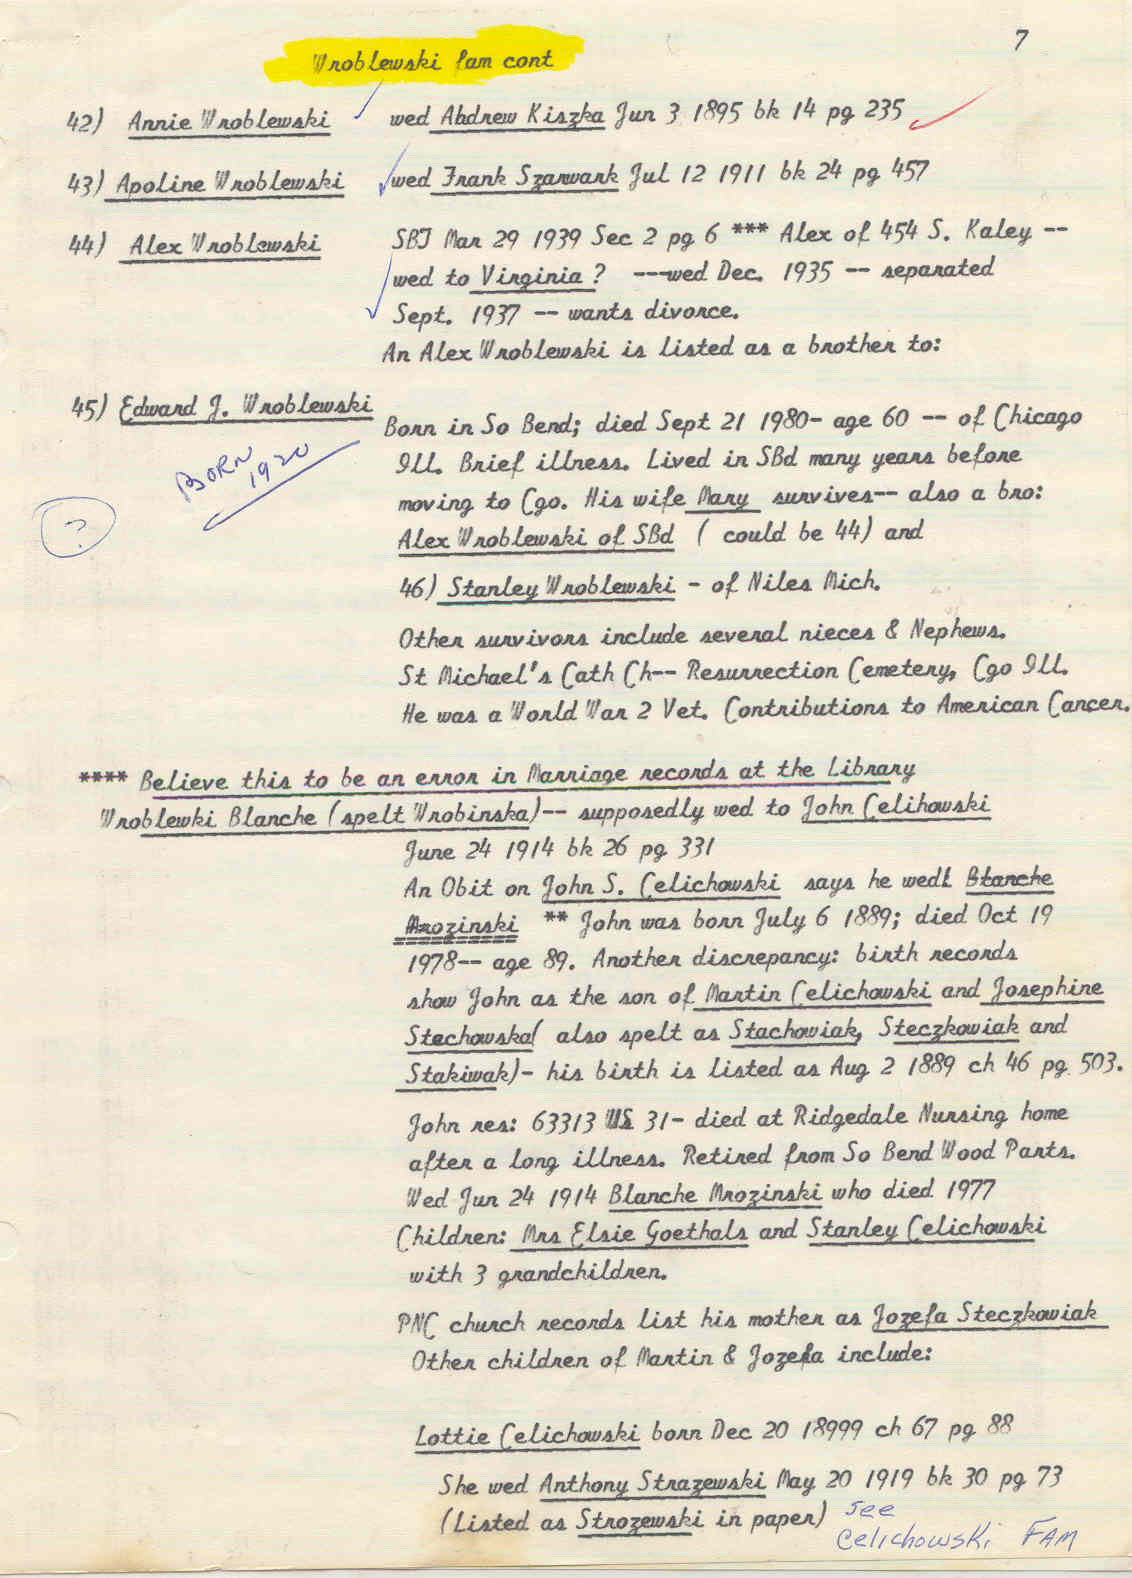 7
Wroblewski fam cont
42) Annie Wroblewski wed Abdrew Kiszka Jun 3 1895 bk 14 pg 235
43) Apoline Wroblewski wed Frank Szarwark Jul 12 1911 bk 24 pg 457
44) Alex Wroblewski SBT Mar 29 1939 Sec 2 pg 6 *** Alex of 454 S. Kaley --
wed to Virginia ? ---wed Dec. 1935 -- separated
Sept. 1937 -- wants divorce.
An Alex Wroblewski is listed as a brother to:
45) Edward J. Wroblewski
Born in So Bend; died Sept 21 1980- age 60 -- of Chicago
Ill. Brief illness. Lived in SBd many years before
moving to Cgo. His wife Mary survives-- also a bro:
Alex Wroblewski of SBd ( could be 44) and
BORN
1920
?
46) Stanley Wroblewski - of Niles Mich.
Other survivors include several nieces & Nephews.
St Michael's Cath Ch-- Resurrection Cemetery, Cgo Ill.
He was a World War 2 Vet. Contributions to American Cancer.
**** Believe this to be an error in Marriage records at the Library
Wroblewki Blanche (spelt Wrobinska)-- supposedly wed to John Celihowski
June 24 1914 bk 26 pg 331
An Obit on John S. Celichowski says he wed! Blanche
Mrozinski ** John was born July 6 1889; died Oct 19
1978-- age 89. Another discrepancy: birth records
show John as the son of Martin Celichowski and Josephine
Stechowska( also spelt as Stachowiak, Steczkowiak and
Stakiwak)- his birth is listed as Aug 2 1889 ch 46 pg 503.
John res: 63313 US 31- died at Ridgedale Nursing home
after a long illness. Retired from So Bend Wood Parts.
Wed Jun 24 1914 Blanche Mrozinski who died 1977
Children: Mrs Elsie Goethals and Stanley Celichowski
with 3 grandchildren.
PNC church records list his mother as Jozefa Steczkowiak
Other children of Martin & Jozefa include:
Lottie Celichowski born Dec 20 18999 ch 67 pg 88
She wed Anthony Strazewski May 20 1919 bk 30 pg 73
(Listed as Strozewski in paper) see
Celichowski FAM